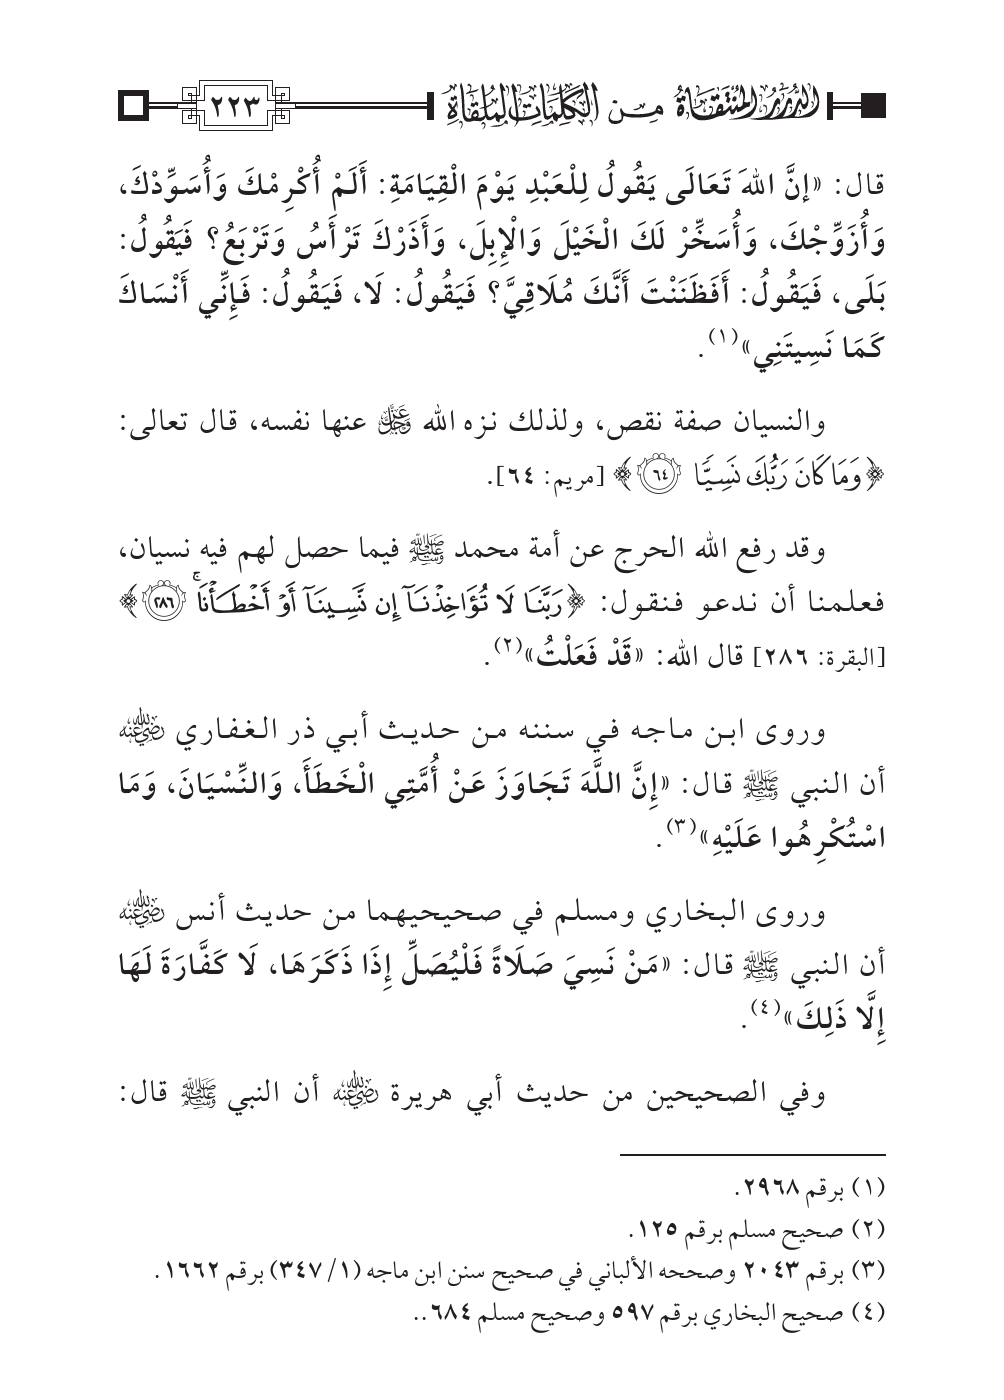 الدرر المنتقاة من الكلمات الملقاة ٢٢٣
قال: «إنَّ اللهَ تَعَالَى يَقُولُ لِلْعَبْدِ يَوْمَ الْقِيَامَةِ: أَلَمْ أُكْرِمْكَ وَأُسَوِّدْكَ،
وَأُزَوِّجْكَ، وَأُسَخِّرْ لَكَ الْخَيْلَ وَالْإِبِلَ، وَأَذَرْكَ تَرْأَسُ وَتَرْبَعُ؟ فَيَقُولُ:
بَلَى، فَيَقُولُ: أَفَظَنَنْتَ أَنَّكَ مُلَاقِيَّ؟ فَيَقُولُ: لَا، فَيَقُولُ: فَإِنِّي أَنْسَاكَ
كَمَا نَسِيتَنِي»(١).
والنسيان صفة نقص، ولذلك نزه الله عَزَّ وَجَلَّ عنها نفسه، قال تعالى:
﴿وَمَا كَانَ رَبُّكَ نَسِيًّا ٦٤﴾ [مريم: ٦٤].
وقد رفع الله الحرج عن أمة محمد ﷺ فيما حصل لهم فيه نسيان،
فعلمنا أن ندعو فنقول: ﴿رَبَّنَا لَا تُؤَاخِذْنَآ إِن نَّسِينَآ أَوْ أَخْطَأْنَاۚ ٢٨٦﴾
[البقرة: ٢٨٦] قال الله: «قَدْ فَعَلْتُ»(٢).
وروى ابن ماجه في سننه من حديث أبي ذر الغفاري رضي الله عنه
أن النبي ﷺ قال: «إِنَّ اللَّهَ تَجَاوَزَ عَنْ أُمَّتِي الْخَطَأَ، وَالنِّسْيَانَ، وَمَا
اسْتُكْرِهُوا عَلَيْهِ»(٣).
وروى البخاري ومسلم في صحيحيهما من حديث أنس رضي الله عنه
أن النبي ﷺ قال: «مَنْ نَسِيَ صَلَاةً فَلْيُصَلِّ إِذَا ذَكَرَهَا، لَا كَفَّارَةَ لَهَا
إِلَّا ذَلِكَ»(٤).
وفي الصحيحين من حديث أبي هريرة رضي الله عنه أن النبي ﷺ قال:
(١) برقم ٢٩٦٨.
(٢) صحيح مسلم برقم ١٢٥.
(٣) برقم ٢٠٤٣ وصححه الألباني في صحيح سنن ابن ماجه (١/ ٣٤٧) برقم ١٦٦٢.
(٤) صحيح البخاري برقم ٥٩٧ وصحيح مسلم ٦٨٤..